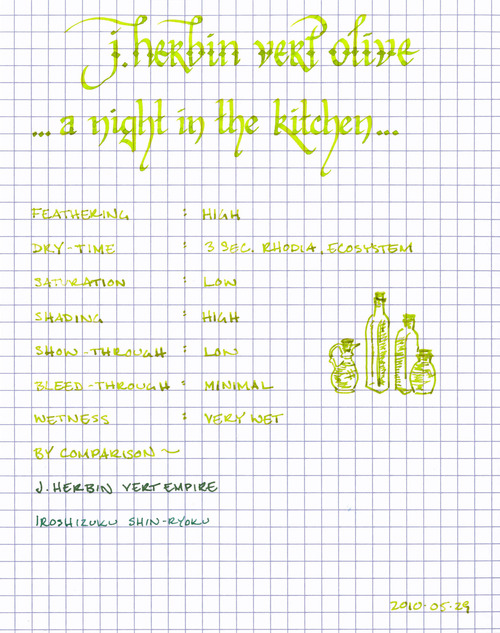 j.herbin vert olive
...a night in the kitchen...
FEATHERING : HIGH
DRY-TIME : 3 SEC. RHODIA, ECOSYSTEM
SATURATION : LOW
SHADING : HIGH
SHOW-THROUGH : LOW
BLEED-THROUGH : MINIMAL
WETNESS : VERY WET
BY COMPARISON ~
J. HERBIN VERT EMPIRE
IROSHIZUKU SHIN-RYOKU
2010.05.29